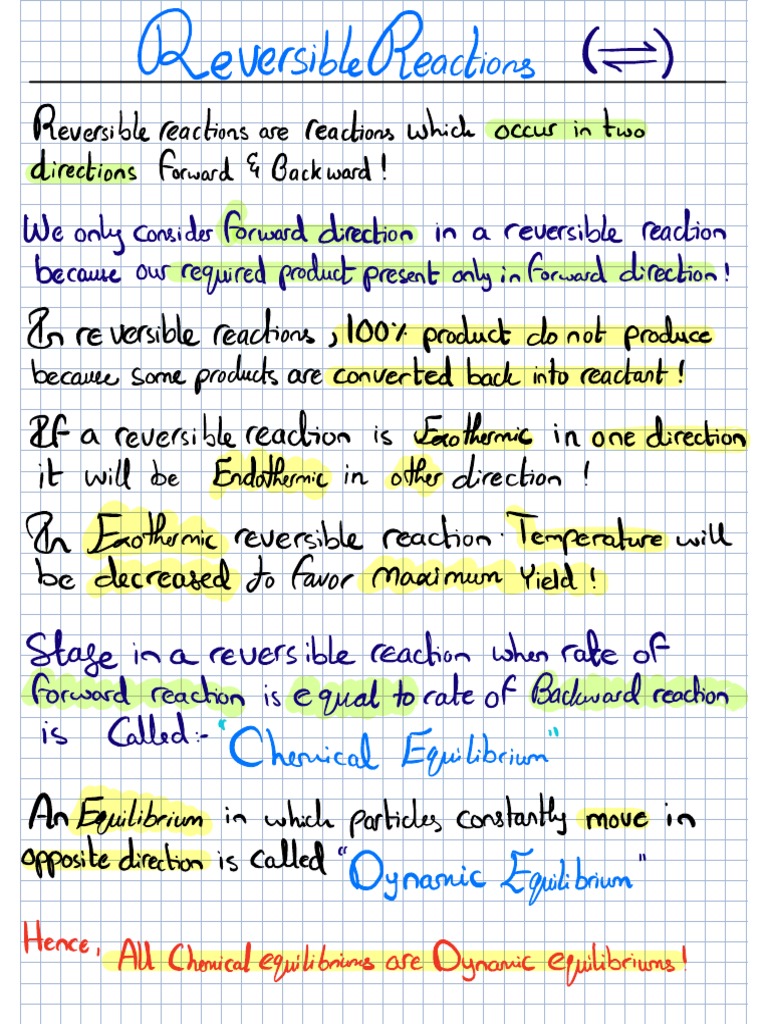 Reversible Reactions (⇌)
Reversible reactions are reactions which occur in two
directions forward & Backward!
We only consider forward direction in a reversible reaction
because our required product present only in forward direction!
In reversible reactions, 100% product do not produce
because some products are converted back into reactant!
If a reversible reaction is Exothermic in one direction
it will be Endothermic in other direction!
In Exothermic reversible reaction. Temperature will
be decreased to favor maximum Yield!
Stage in a reversible reaction when rate of
forward reaction is equal to rate of Backward reaction
is Called:- "Chemical Equilibrium"
An Equilibrium in which particles constantly move in
opposite direction is called "Dynamic Equilibrium"
Hence, All Chemical equilibriums are Dynamic equilibriums!